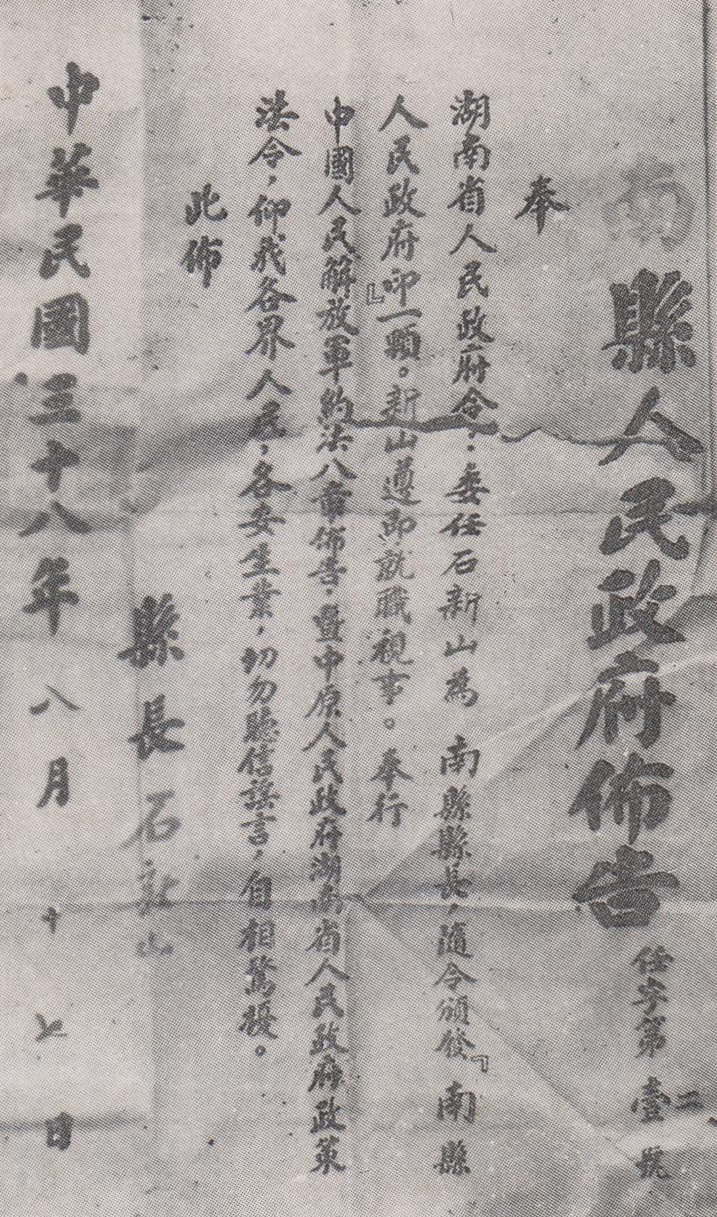 南縣人民政府佈告
任字第壹號
二
奉
湖南省人民政府令，委任石新山為 南縣縣長，隨令頒發『南縣
人民政府印』一顆。新山遵即就職視事。奉行
中國人民解放軍約法八章佈告，暨中原人民政府湖南省人民政府政策
法令，仰我各界人民，各安生業，切勿聽信謠言，自相驚擾。
此佈
縣長石新山
中華民國三十八年八月十七日